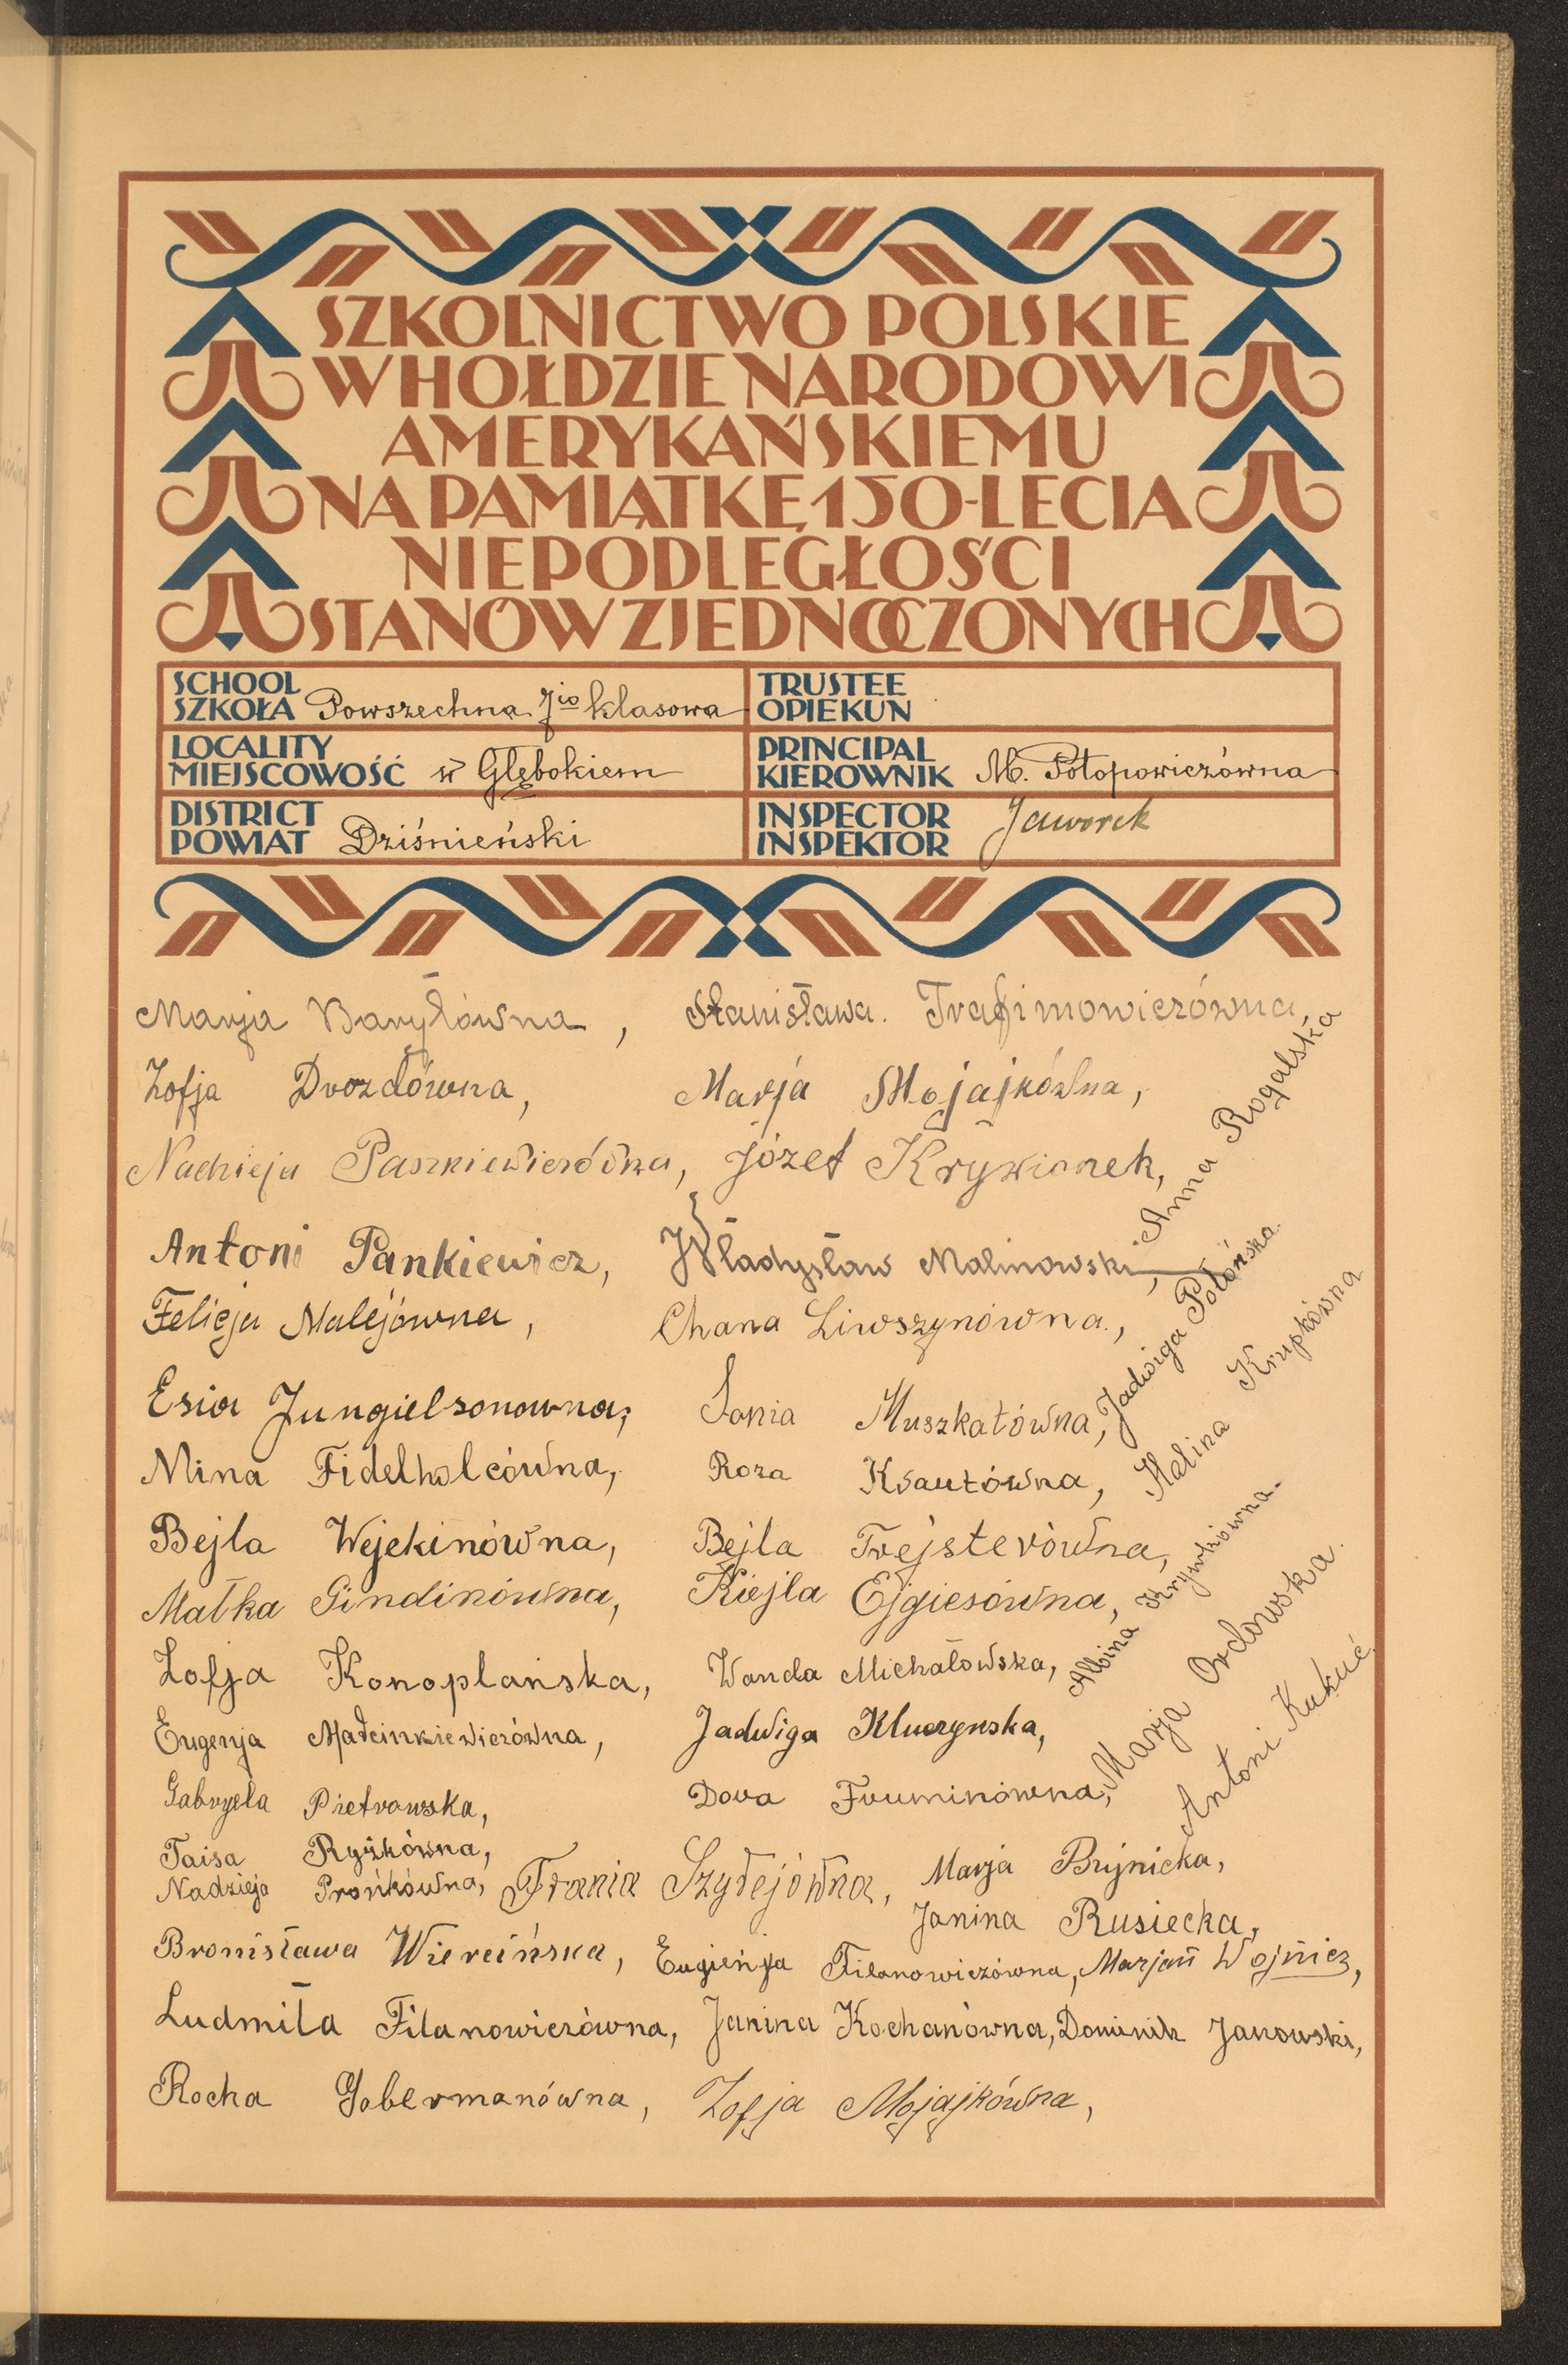 SZKOLNICTWO POLSKIE
W HOŁDZIE NARODOWI
AMERYKAŃSKIEMU
NA PAMIĄTKĘ 150-LECIA
NIEPODLEGŁOŚCI
STANÓW ZJEDNOCZONYCH
SCHOOL
SZKOŁA Powszechna 7io klasowa
TRUSTEE
OPIEKUN
LOCALITY
MIEJSCOWOŚĆ w Głębokiem
PRINCIPAL
KIEROWNIK M. Potopowiczówna
DISTRICT
POWIAT Dziśnieński
INSPECTOR
INSPEKTOR Jaworek
Marja Baryłówna, Stanisława. Trafimowiczówna,
Zofja Drozdówna, Marja Mojajkówna,
Nadzieja Paszkiewiczówna, Józef Krywionek,
Antoni Pankiewicz, Władysław Malinowski,
Felicja Malejówna, Chana Liwszynówna.,
Esia Jungielsonowna, Sonia Muszkatówna,
Mina Fidelholcówna, Roza Ksautówna,
Bejla Wejekinówna, Bejla Trejsterówna,
Małka Gindinówna, Kiejla Ejgiesówna,
Zofja Konoplańska, Wanda Michałowska,
Eugenja Marcinkiewiczówna, Jadwiga Kluczynska,
Gabryela Pietrowska, Dora Fruminówna,
Taisa Ryżkówna,
Nadzieja Prońkówna, Frania Szyłejówna, Marja Brijnicka,
Janina Rusiecka,
Bronisława Wiercińska, Eugienja Filanowiczówna, Marjan Wojnicz,
Ludmiła Filanowiczówna, Janina Kochanówna, Dominik Janowski,
Rocha Gobermanówna, Zofja Mojajkówna,
Anna Rogalska
Jadwiga Połońska.
Halina Krupkówna
Albina Krywkówna.
Marja Ordowska.
Antoni Kukuć.